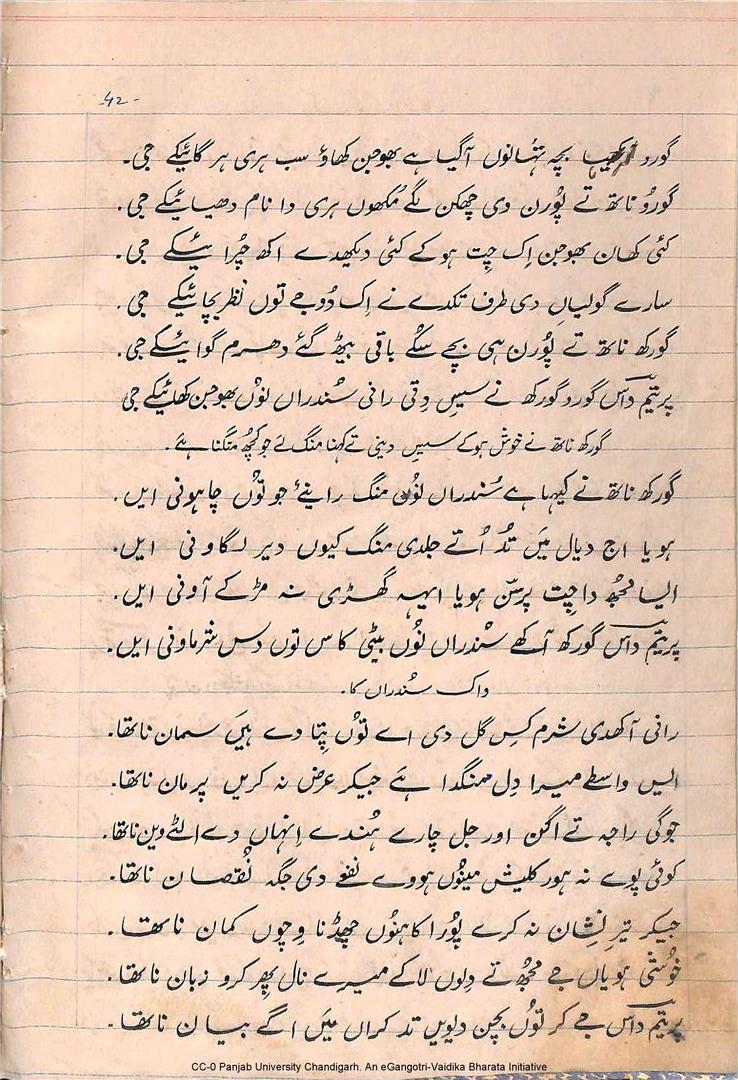 -42-
گورو کہیا بچہ تہانوں آگیا ہے بھوجن کھاؤ سب ہری ہر گائیکے جی۔
گورُو ناتھ تے پُورن دی چھکن لگے مُکھوں ہری دا نام دھیائیکے جی۔
کئی کھان بھوجن اِک چِت ہو کے کئی دیکھدے اکھ چُرائیکے جی۔
سارے گولیاں دی طرف تکدے نے اِک دُوجے توں نظر بچائیکے جی۔
گورکھ ناتھ تے پُورن ہی بچے سکُے باقی بیٹھ گئے دھرم گوائیکے جی۔
پرتیم داس گورو گورکھ نے سیس دِتی رانی سُندراں نوُں بھوجن کھائیکے جی
گورکھ ناتھ نے خوش ہو کے سیس دینی تے کہنا منگ لے جو کچُھ منگنا ہے۔
گورکھ ناتھ نے کیہا ہے سُندراں نوُں منگ رانیئے جو توُں چاہونی ایں۔
ہویا اج دیال میَں تدُ اُتے جلدی منگ کیوں دیر لگاونی ایں۔
ایسا مجھُ دا چِت پرسّن ہویا ایہہ گھڑی نہ مڑ کے آونی ایں۔
پرتیم داس گورکھ آکھے سُندراں نوُں بیٹی کاس توں دس شرماونی ایں۔
واک سُندراں کا۔
رانی آکھدی شرم کِس گل دی اے توُں پِتا دے ہیَں سمان ناتھا۔
ایس واسطے میرا دِل منگدا ہے جیکر عرض نہ کریں پرمان ناتھا۔
جوگی راجہ تے اگن اور جل چارے ہُندے اِنہاں دے الٹے وین ناتھا۔
کوئی پوے نہ ہور کلیش مینوُں ہووے نفعے دی جگہ نُقصان ناتھا۔
جیکر تیر نشان نہ کرے پُورا کاہنوُں چھڈنا وِچوں کمان ناتھا۔
خوُشی ہویاں جے مجھُ تے دِلوں لا کے میرے نال پِھر کرو زبان ناتھا۔
پرتیم داس جے کر توُں بچن دیویں تد کراں میَں اگے بیان ناتھا۔
CC-0 Panjab University Chandigarh. An eGangotri-Vaidika Bharata Initiative